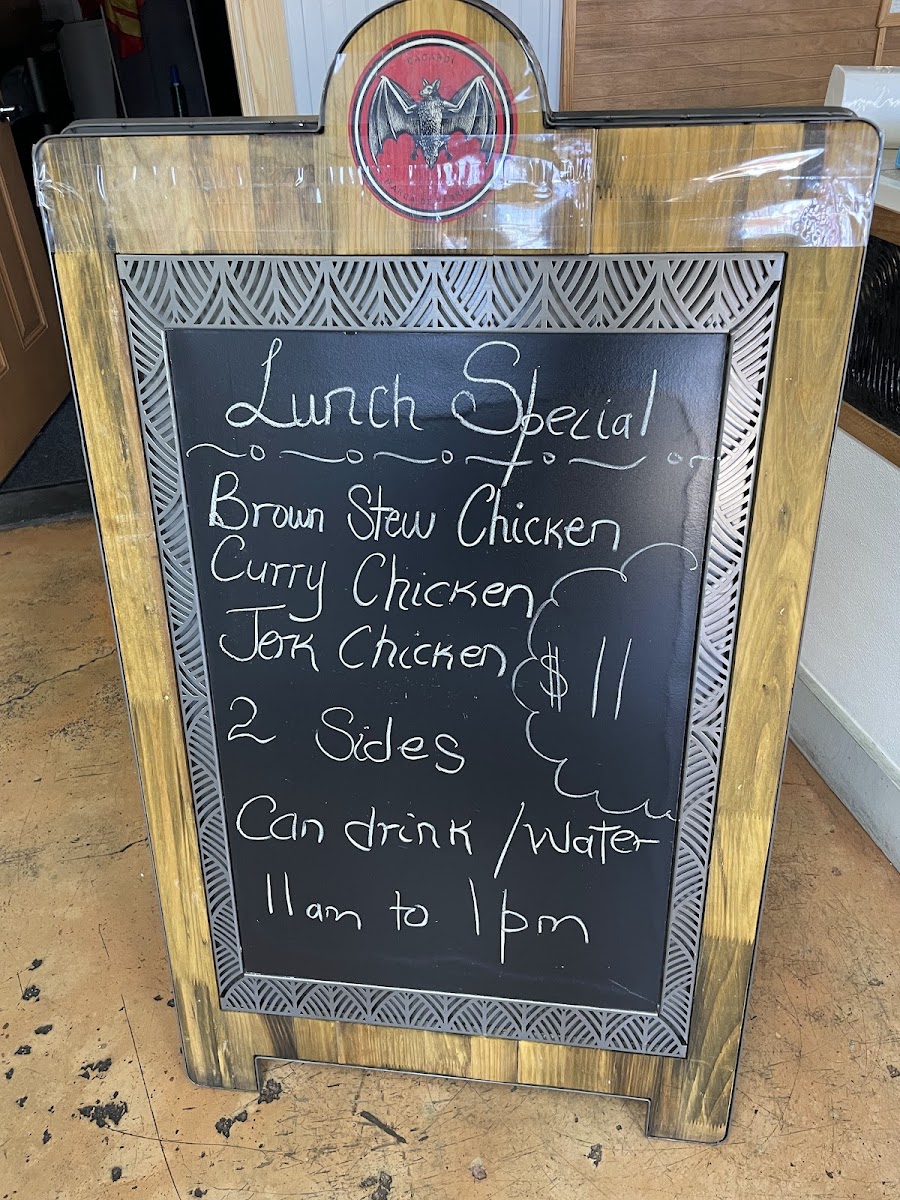 BACARDI
Lunch Special
Brown Stew Chicken
Curry Chicken
Jerk Chicken
$11
2 Sides
Can drink / Water
11am to 1pm